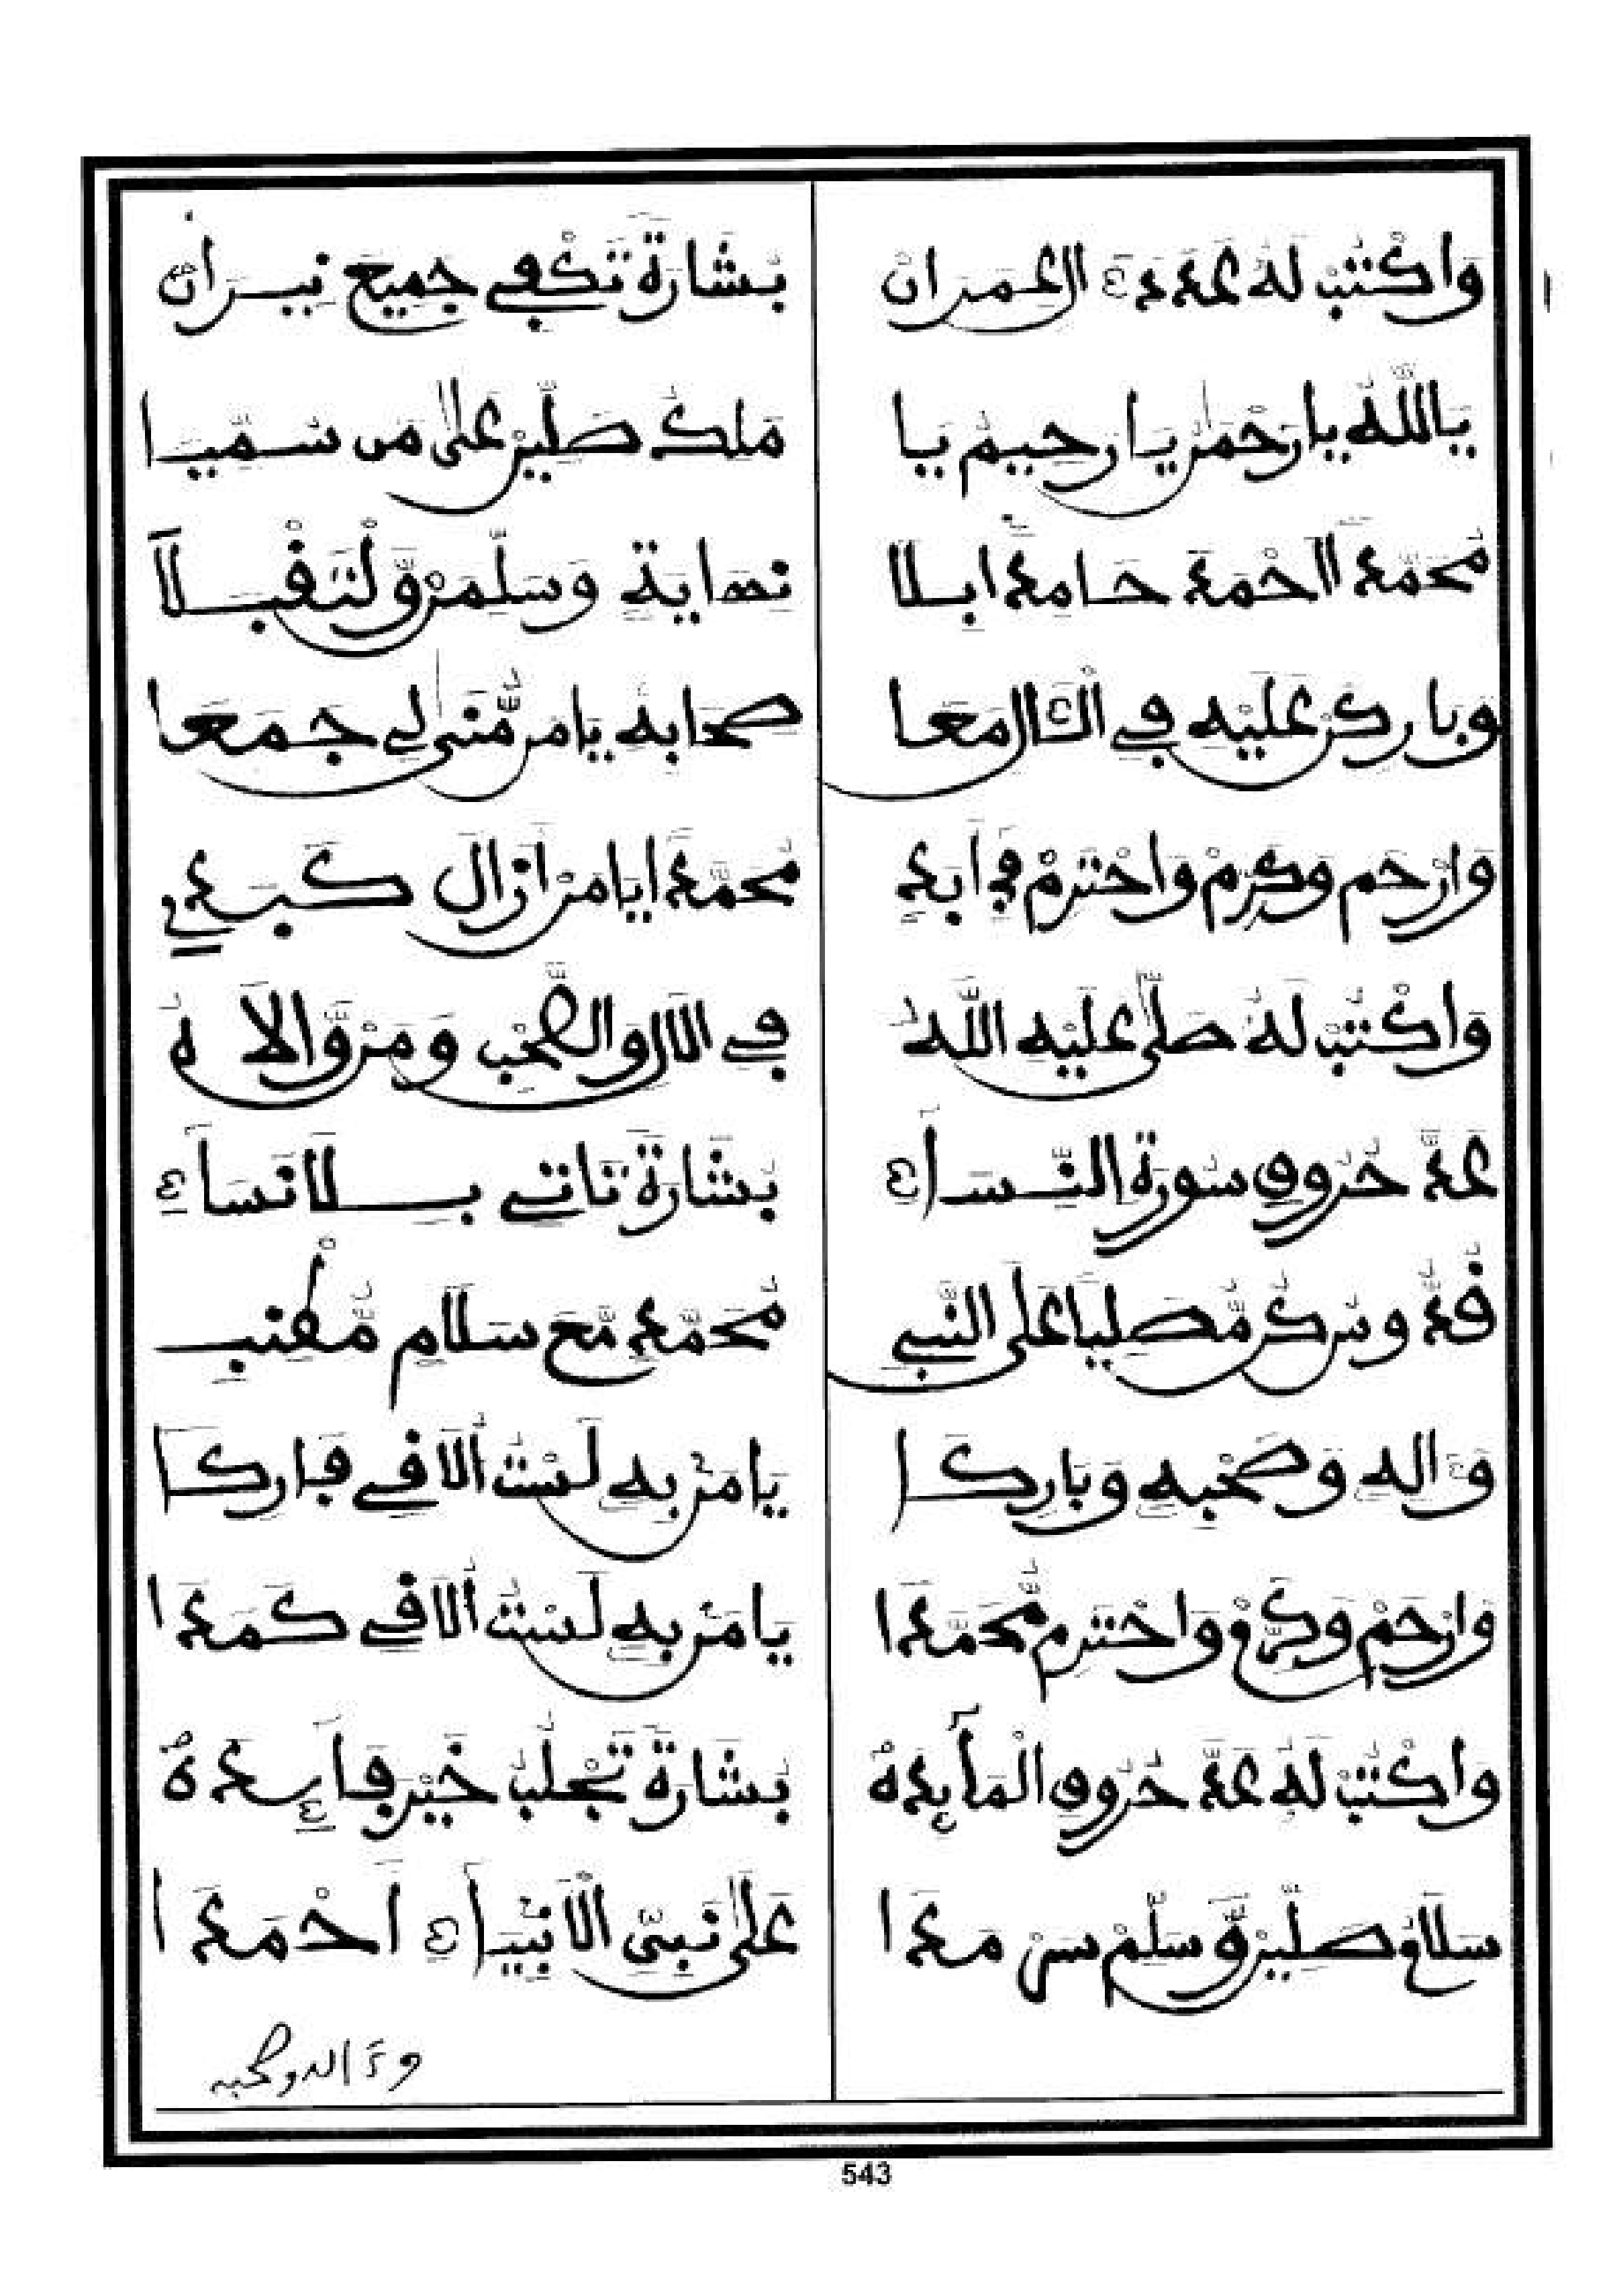 وَاكْتُبْ لَهُ عَدَدَ ءَالِ عِمْرَانْ بِشَارَةً تَكْفِي جَمِيعَ نِيرَانْ
يَا اللَّهُ يَا رَحْمَٰنُ يَا رَحِيمُ يَا مَلِكُ صَلِّيَنْ عَلَىٰ مَن سُمِّيَا
مُحَمَّدًا أَحْمَدَ حَامِدًا بِلَا نِهَايَةٍ وَسَلِّمَنْ وَّلْتَقْبَلَا
وَبَارِكَنْ عَلَيْهِ فِي الْآلِ مَعَا صَحَابِهِ يَا مَن مُّنَىٰ لِي جَمَعَا
وَارْحَم وَكَرِّمْ وَاحْتَرِمْ أَبَدِ مُحَمَّدًا يَا مَنْ أَزَالَ كَبَدِي
وَاكْتُبْ لَهُ صَلَّىٰ عَلَيْهِ اللَّهُ فِي الْآلِ وَالصَّحْبِ وَمَنْ وَّالَاهُ
عَدَّ حُرُوفِ سُورَةِ النِّسَاءِ بِشَارَةً تَاتِي بِلَا نَسَاءِ
قُدْ وَسُرَّ كُن مُّصَلِّيًا عَلَى النَّبِي مُحَمَّدٍ مَّعَ سَلَامٍ مُّطْنِبِ
وَءَالِهِ وَصَحْبِهِ وَبَارِكَا يَا مَنْ بِهِ لَسْتُ أُلَاقِي فَارِكَا
وَارْحَمْ وَكَرِّمْ وَاحْتَرِم مُّحَمَّدَا يَا مَنْ بِهِ لَسْتُ أُلَاقِي كَمَدَا
وَاكْتُبْ لَهُ عَدَّ حُرُوفِ الْمَائِدَهْ بِشَارَةً تَجْلُبُ خَيْرَ فَائِدَهْ
سَلَامُ صَلِّيَنْ وَّسَلِّمْ سَرْمَدَا عَلَىٰ نَبِيِّ الْأَنْبِيَاءِ أَحْمَدَا
وءاله وصحبه
543